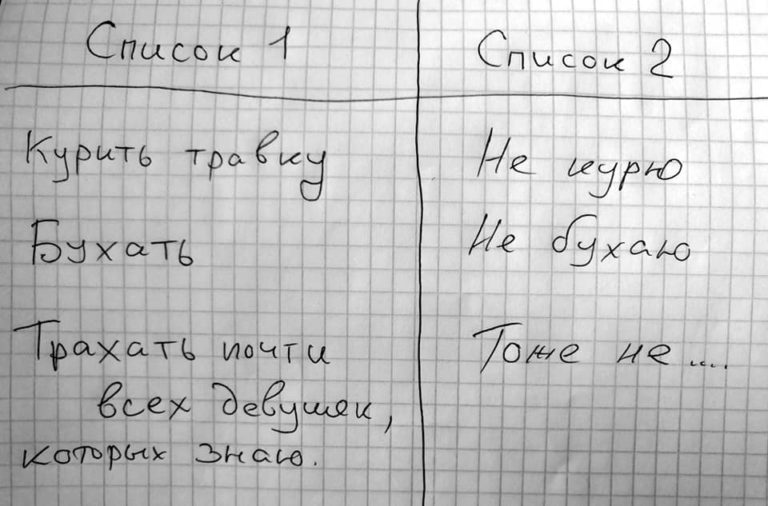 Список 1
Список 2
Курить травку
Бухать
Трахать почти
всех девушек,
которых знаю.
Не курю
Не бухаю
Тоже не....